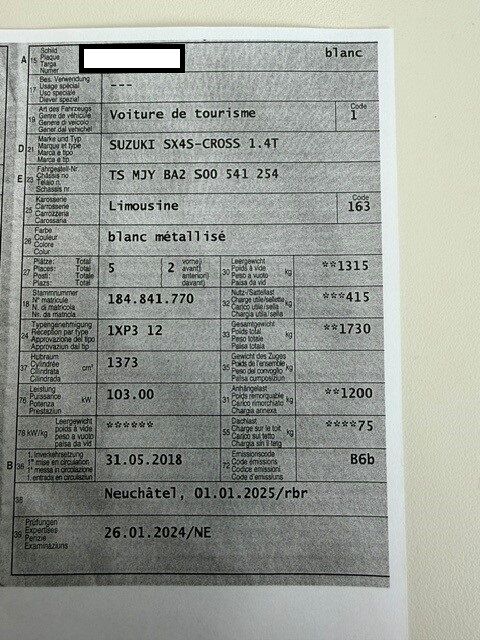 A 15 Schild Plaque Targa Numer blanc
17 Bes. Verwendung Usage spécial Uso speciale Diever spezial ---
19 Art des Fahrzeugs Genre de véhicule Genere di veicolo Gener dal vehichel Voiture de tourisme Code 1
D 21 Marke und Typ Marque et type Marca e tipo Marca e tip SUZUKI SX4S-CROSS 1.4T
E 23 Fahrgestell-Nr. Châssis no Telaio n. Schassis nr. TS MJY BA2 S00 541 254
25 Karosserie Carrosserie Carrozzeria Carossaria Limousine Code 163
26 Farbe Couleur Colore Colur blanc métallisé
27 Plätze: Total Places: Total Posti: Totale Plazs: Total 5 2 vorne) avant) anteriori) davant) 30 Leergewicht Poids à vide Peso a vuoto Paisa da vid kg **1315
18 Stammnummer N° matricule N. matricola Nr. da matricla 184.841.770 32 Nutz-/Sattellast Charge utile/sellette Carico utile/sella Chargia utila/sella kg ***415
24 Typengenehmigung Réception par type Approvazione del tipo Approvaziun dal tip 1XP3 12 33 Gesamtgewicht Poids total Peso totale Paisa totala kg **1730
37 Hubraum Cylindrée Cilindrata Cilindrada cm³ 1373 35 Gewicht des Zuges Poids de l'ensemble Peso del convoglio Paisa cumposiziun kg
76 Leistung Puissance Potenza Prestaziun kW 103.00 31 Anhängelast Poids remorquable Carico rimorchiato Chargia annexa kg **1200
78 kW/kg Leergewicht poids à vide peso a vuoto paisa da vid ****** 55 Dachlast Charge sur le toit Carico sul tetto Chargia sin il tetg kg ****75
B 36 1. Inverkehrsetzung 1re mise en circulation 1a messa in circolazione 1. entrada en circulaziun 31.05.2018 72 Emissionscode Code émissions Codice emissioni Code d'emissiuns B6b
38 Neuchâtel, 01.01.2025/rbr
39 Prüfungen Expertises Perizie Examinaziuns 26.01.2024/NE